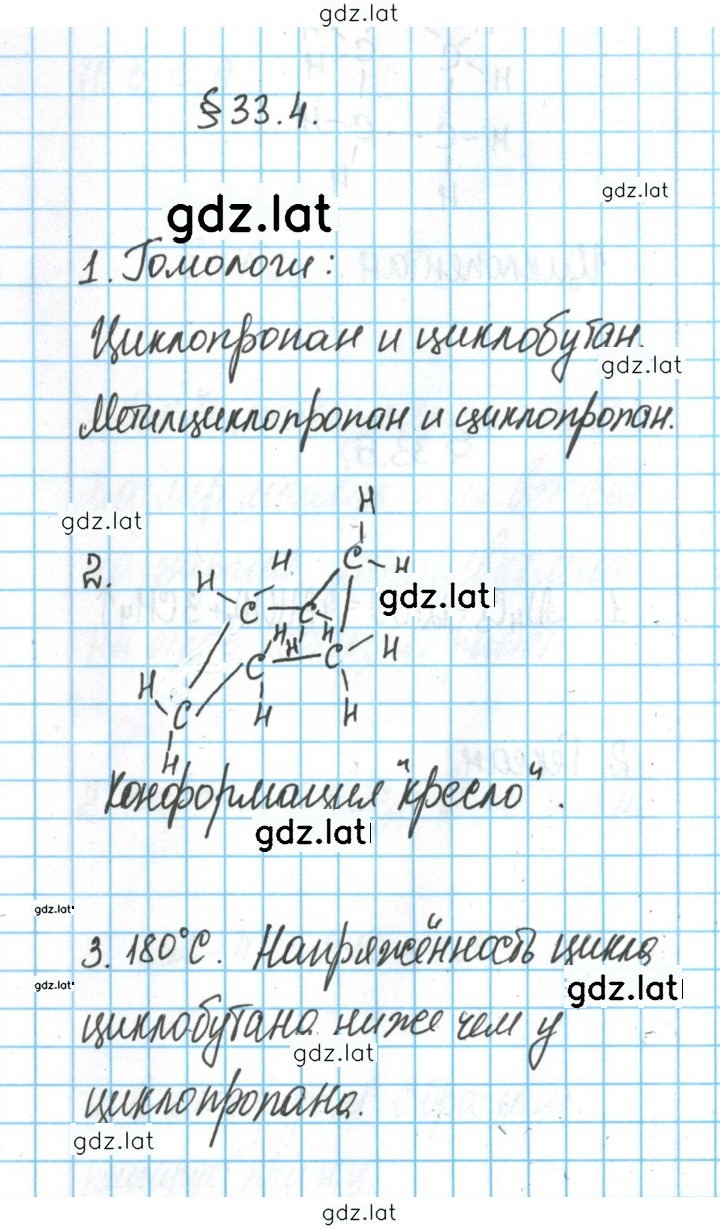 gdz.lat
§ 33.4.
gdz.lat
gdz.lat
1. Гомологи:
Циклопропан и циклобутан.
gdz.lat
Метилциклопропан и циклопропан.
gdz.lat
2.
H
H H C H
gdz.lat
C C
H H H
C C H
H
C H H
H
Конформация "кресло".
gdz.lat
gdz.lat
3. 180°C. Напряжённость цикла
gdz.lat
gdz.lat
циклобутана ниже чем у
gdz.lat
циклопропана.
gdz.lat
gdz.lat